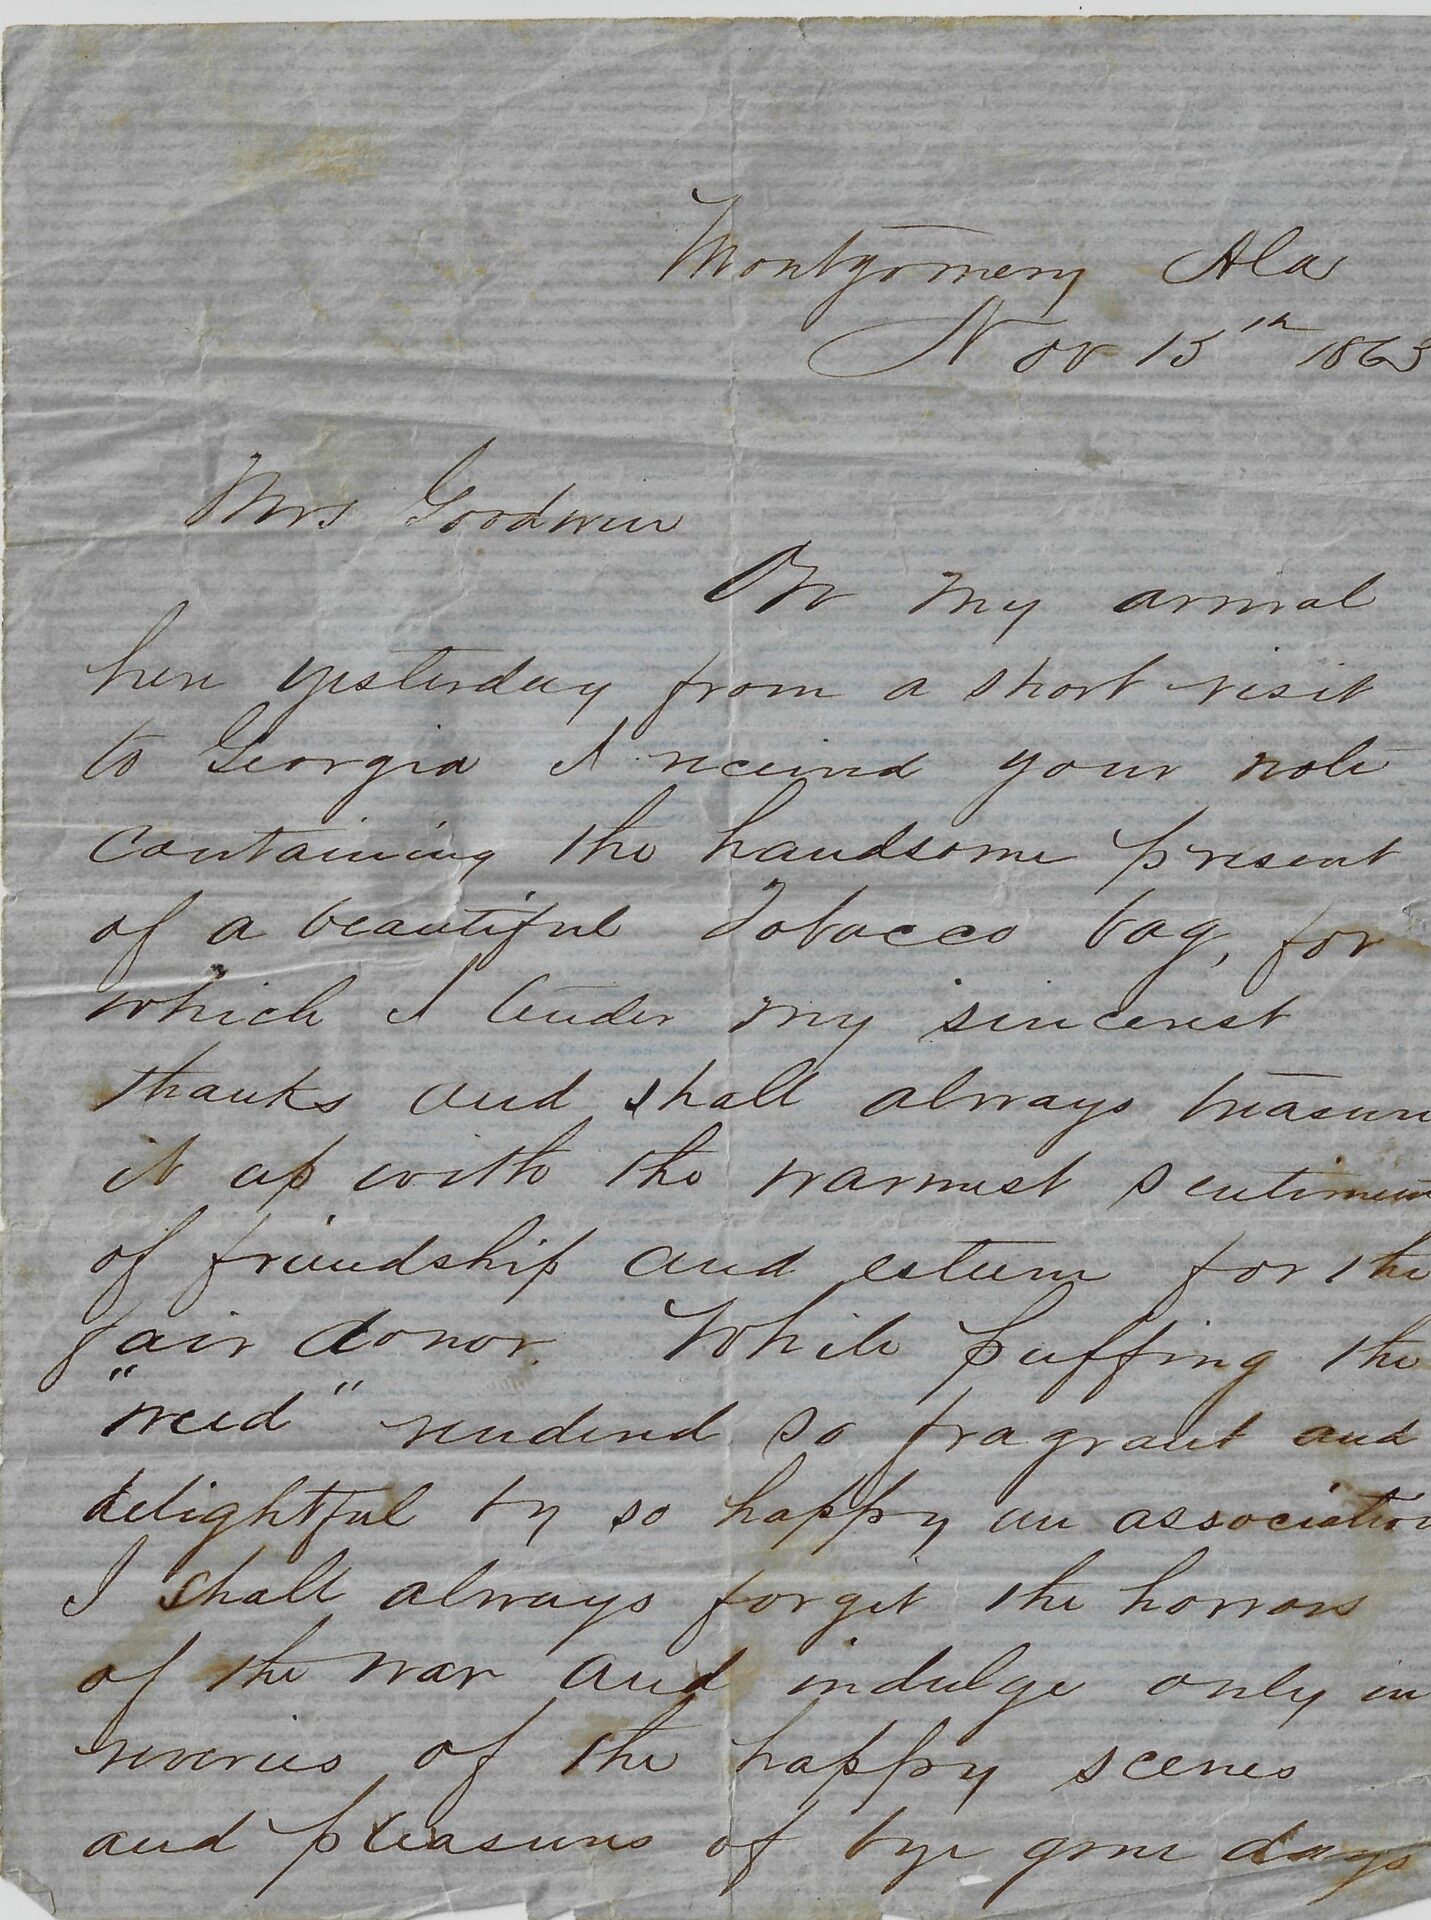 Montgomery Ala
Nov 15th 1863
Mrs Goodwin
On my arrival
here yesterday from a short visit
to Georgia I received your note
containing the handsome present
of a beautiful Tobacco bag, for
which I tender my sincerest
thanks and shall always treasure
it up with the warmest sentiment
of friendship and esteem for the
fair donor. While puffing the
"weed" rendered so fragrant and
delightful by so happy an association
I shall always forget the horrors
of the war and indulge only in
reveries of the happy scenes
and pleasures of bye gone days